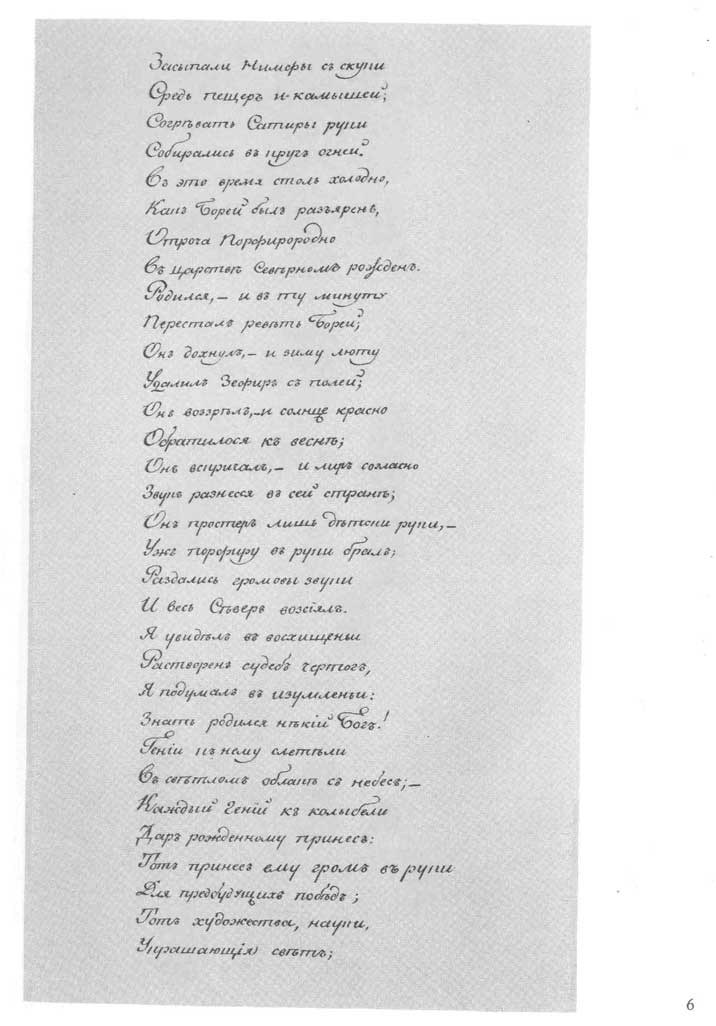 Засыпали Нимфы съ скуки
Средь пещеръ и камышей;
Согрѣвать Сатиры руки
Собирались въ кругъ огней.
Въ это время столь холодно,
Какъ Борей былъ разъяренъ,
Отроча Порфирородно
Въ царствѣ Сѣверномъ рожденъ.
Родился, – и въ ту минуту
Пересталъ ревѣть Борей;
Онъ дохнулъ, – и зиму люту
Удалилъ Зефиръ съ полей;
Онъ воззрѣлъ, – и солнце красно
Обратилося къ веснѣ;
Онъ вскричалъ, – и лиръ согласно
Звукъ разнесся въ сей странѣ;
Онъ простеръ лишь дѣтски руки, –
Ужъ порфиру въ руки бралъ;
Раздались громовы звуки
И весь Сѣверъ возсіялъ.
Я увидѣлъ въ восхищеньи
Растворенъ судебъ чертогъ,
Я подумалъ въ изумленьи:
Знать родился нѣкій Богъ!
Геніи къ нему слетѣли
Въ свѣтломъ облакѣ съ небесъ; –
Каждый Геній къ колыбели
Даръ рожденному принесъ:
Тотъ принесъ ему громъ въ руки
Для предбудущихъ побѣдъ;
Тотъ художества, науки,
Украшающія свѣтъ;
6